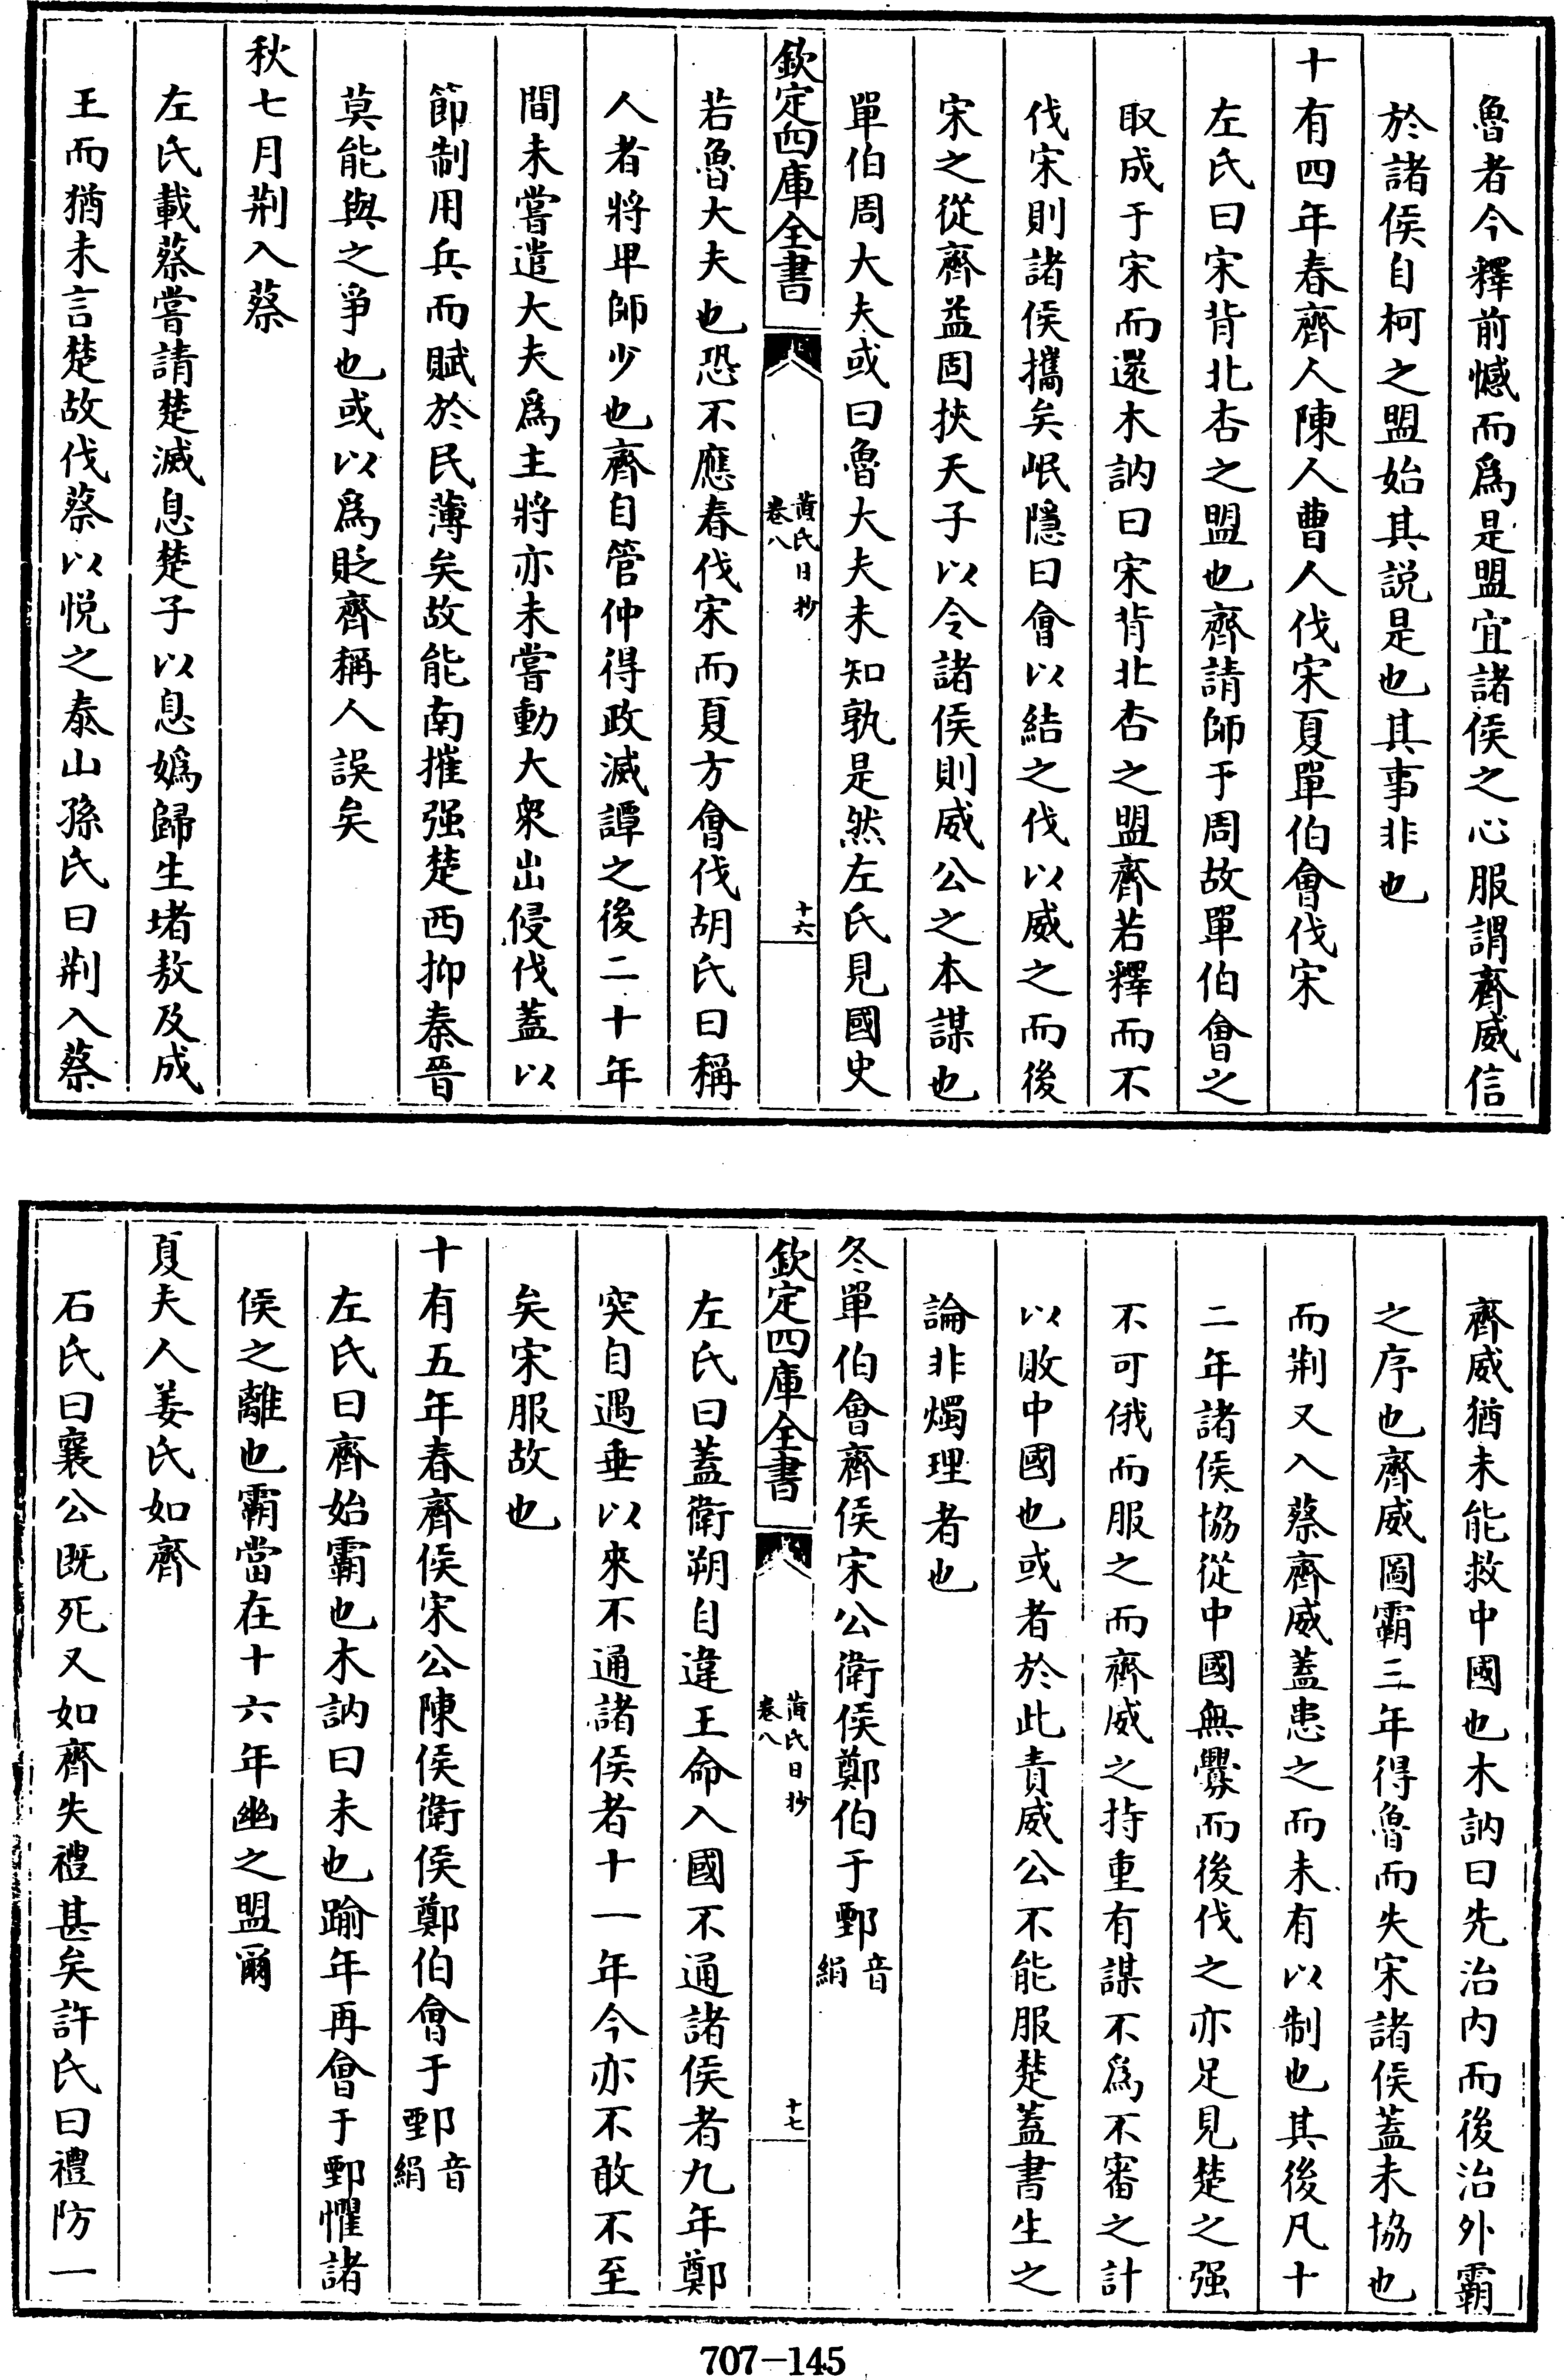 魯者今釋前憾而爲是盟宜諸侯之心服謂齊威信
於諸侯自柯之盟始其説是也其事非也
十有四年春齊人陳人曹人伐宋夏單伯會伐宋
左氏曰宋背北杏之盟也齊請師于周故單伯會之
取成于宋而還木訥曰宋背北杏之盟齊若釋而不
伐宋則諸侯攜矣岷隱曰會以結之伐以威之而後
宋之從齊益固挾天子以令諸侯則威公之本謀也
單伯周大夫或曰魯大夫未知孰是然左氏見國史
欽定四庫全書
黄氏日抄
卷八
十六
若魯大夫也恐不應春伐宋而夏方會伐胡氏曰稱
人者將卑師少也齊自管仲得政滅譚之後二十年
間未嘗遣大夫爲主將亦未嘗動大衆出侵伐蓋以
節制用兵而賦於民薄矣故能南摧强楚西抑秦晉
莫能與之爭也或以爲貶齊稱人誤矣
秋七月荆入蔡
左氏載蔡嘗請楚滅息楚子以息嬀歸生堵敖及成
王而猶未言楚故伐蔡以悦之泰山孫氏曰荆入蔡
齊威猶未能救中國也木訥曰先治内而後治外霸
之序也齊威圖霸三年得魯而失宋諸侯蓋未協也
而荆又入蔡齊威蓋患之而未有以制也其後凡十
二年諸侯協從中國無釁而後伐之亦足見楚之强
不可俄而服之而齊威之持重有謀不爲不審之計
以敗中國也或者於此責威公不能服楚蓋書生之
論非燭理者也
冬單伯會齊侯宋公衛侯鄭伯于鄄音絹
欽定四庫全書
黄氏日抄
卷八
十七
左氏曰蓋衛朔自違王命入國不通諸侯者九年鄭
突自遇垂以來不通諸侯者十一年今亦不敢不至
矣宋服故也
十有五年春齊侯宋公陳侯衛侯鄭伯會于鄄音絹
左氏曰齊始霸也木訥曰未也踰年再會于鄄懼諸
侯之離也霸當在十六年幽之盟爾
夏夫人姜氏如齊
石氏曰襄公既死又如齊失禮甚矣許氏曰禮防一
707-145